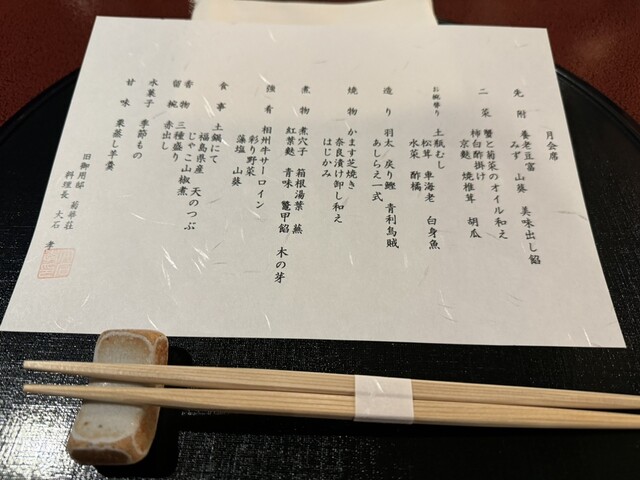 月会席
先附 養老豆富 山葵 美味出し餡
みず
二菜 蟹と菊菜のオイル和え
柿白酢掛け 胡瓜
京麩 焼椎茸
お椀替り 土瓶むし
松茸 車海老 白身魚
水菜 酢橘
造り 羽太 戻り鰹 青利烏賊
あしらえ一式
焼物 かます芝焼き
奈良漬け卸し和え
はじかみ
煮物 煮穴子 箱根湯葉 蕪
紅葉麩 青味 鼈甲餡 木の芽
強肴 相州牛サーロイン
彩り野菜
藻塩 山葵
食事 土鍋にて
福島県産 天のつぶ
じゃこ山椒煮
香物 三種盛り
留椀 赤出し
水菓子 季節もの
甘味 栗蒸し羊羹
旧御用邸 菊華荘
料理長 大石